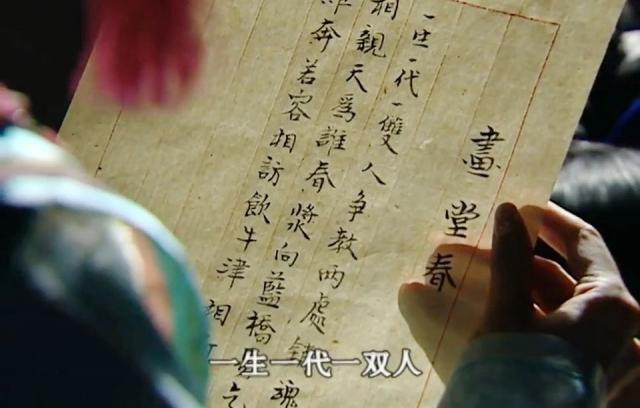 畫堂春
一生一代一雙人争教两處銷魂
相親天爲誰春漿向藍橋易乞
奔若容相訪飲牛津相
一生一代一双人